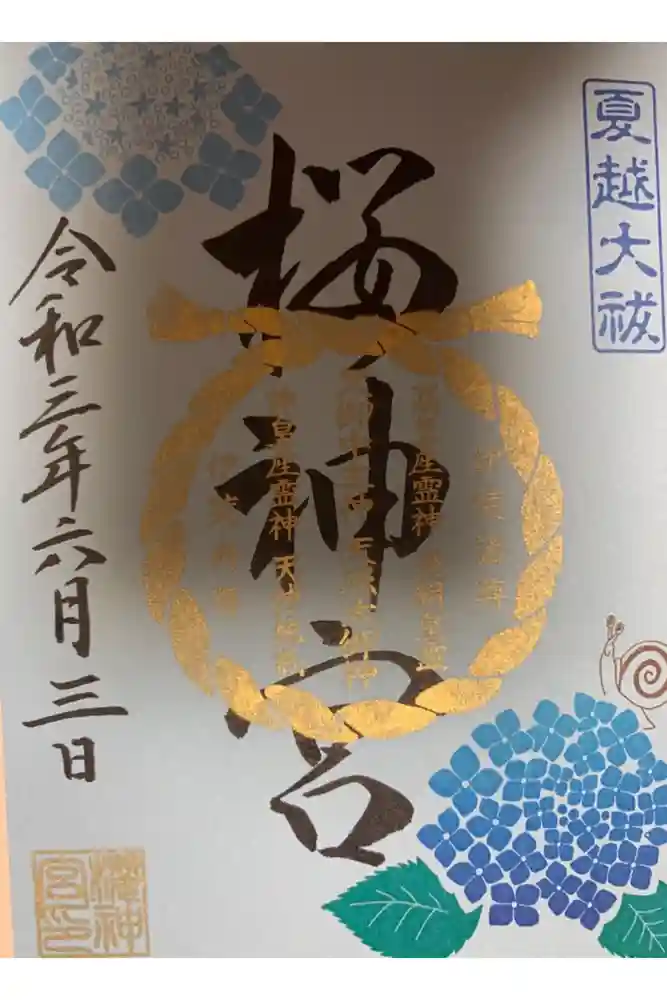 夏越大祓
桜神宮
高皇産霊神
神皇産霊神 天神地祇
令和三年六月三日
櫻神
宮印